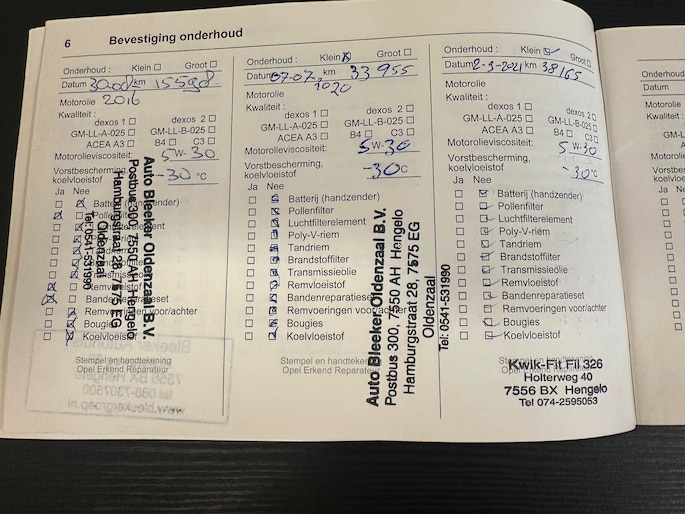 6 Bevestiging onderhoud
Onderhoud : Klein Groot
Datum km
2016
Motorolie
Kwaliteit :
dexos 1 dexos 2
GM-LL-A-025 GM-LL-B-025
ACEA A3 B4 C3
Motorolieviscositeit: 5 W-30
Vorstbescherming,
koelvloeistof -30 °C
Ja Nee
Batterij (handzender)
Remvloeistof
Remvoeringen voor/achter
Bougies
Koelvloeistof
Stempel en handtekening
Opel Erkend Reparateur
Auto Bleeker Oldenzaal B.V.
Postbus 300, 7550 AH Hengelo
Hamburgstraat 28, 7575 EG
Oldenzaal
Tel: 0541-531990
Bleeker
7556 BX Hengelo
tel 088-7307500
www.bleekergroep.nl
Onderhoud : Klein Groot
Datum 07-07, km 33 955
2020
Motorolie
Kwaliteit :
dexos 1 dexos 2
GM-LL-A-025 GM-LL-B-025
ACEA A3 B4 C3
Motorolieviscositeit: 5 W-30
Vorstbescherming,
koelvloeistof -30 °C
Ja Nee
Batterij (handzender)
Pollenfilter
Luchtfilterelement
Poly-V-riem
Tandriem
Brandstoffilter
Transmissieolie
Remvloeistof
Bandenreparatieset
Remvoeringen voor/achter
Bougies
Koelvloeistof
Stempel en handtekening
Opel Erkend Reparateur
Auto Bleeker Oldenzaal B.V.
Postbus 300, 7550 AH Hengelo
Hamburgstraat 28, 7575 EG
Oldenzaal
Tel: 0541-531990
Onderhoud : Klein Groot
Datum 2-3-2021 km 38165
Motorolie
Kwaliteit :
dexos 1 dexos 2
GM-LL-A-025 GM-LL-B-025
ACEA A3 B4 C3
Motorolieviscositeit: 5 W-30
Vorstbescherming,
koelvloeistof -30 °C
Ja Nee
Batterij (handzender)
Pollenfilter
Luchtfilterelement
Poly-V-riem
Tandriem
Brandstoffilter
Transmissieolie
Remvloeistof
Bandenreparatieset
Remvoeringen voor/achter
Bougies
Koelvloeistof
Stempel en handtekening
Opel Erkend Reparateur
Kwik-Fit Fil 326
Holterweg 40
7556 BX Hengelo
Tel 074-2595053
Onderhoud
Datum
Motorolie
Kwaliteit
Ja